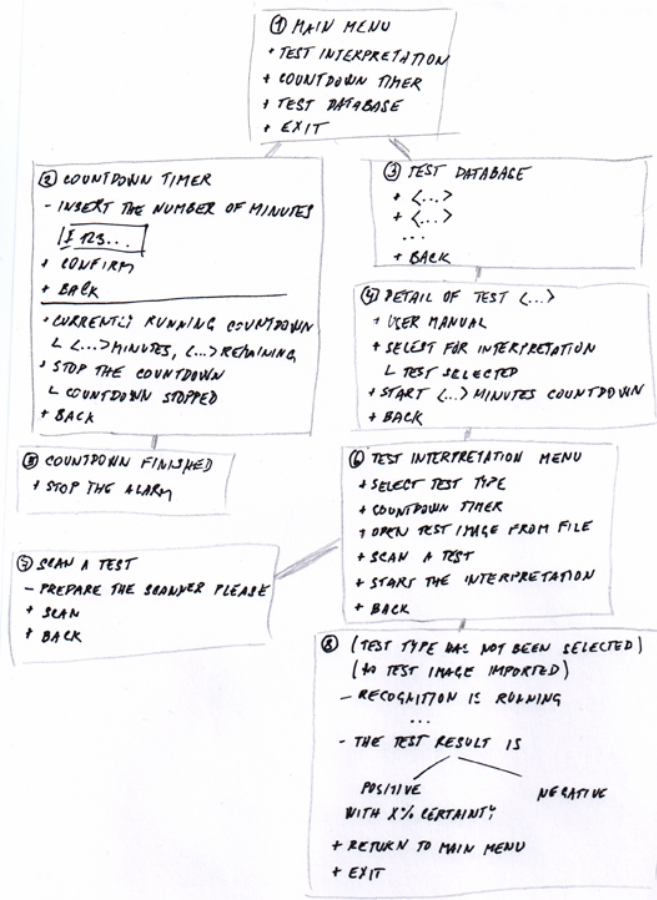 ① MAIN MENU
+ TEST INTERPRETATION
+ COUNTDOWN TIMER
+ TEST DATABASE
+ EXIT
② COUNTDOWN TIMER
- INSERT THE NUMBER OF MINUTES
I 123...
+ CONFIRM
+ BACK
+ CURRENTLY RUNNING COUNTDOWN
└ <...> MINUTES, <...> REMAINING
+ STOP THE COUNTDOWN
└ COUNTDOWN STOPPED
+ BACK
③ TEST DATABASE
+ <...>
+ <...>
...
+ BACK
④ DETAIL OF TEST <...>
+ USER MANUAL
+ SELECT FOR INTERPRETATION
└ TEST SELECTED
+ START <...> MINUTES COUNTDOWN
+ BACK
⑤ COUNTDOWN FINISHED
+ STOP THE ALARM
⑥ TEST INTERPRETATION MENU
+ SELECT TEST TYPE
+ COUNTDOWN TIMER
+ OPEN TEST IMAGE FROM FILE
+ SCAN A TEST
+ START THE INTERPRETATION
+ BACK
⑦ SCAN A TEST
- PREPARE THE SCANNER PLEASE
+ SCAN
+ BACK
⑧ (TEST TYPE HAS NOT BEEN SELECTED)
(NO TEST IMAGE IMPORTED)
- RECOGNITION IS RUNNING
...
- THE TEST RESULT IS
POSITIVE NEGATIVE
WITH X% CERTAINTY
+ RETURN TO MAIN MENU
+ EXIT